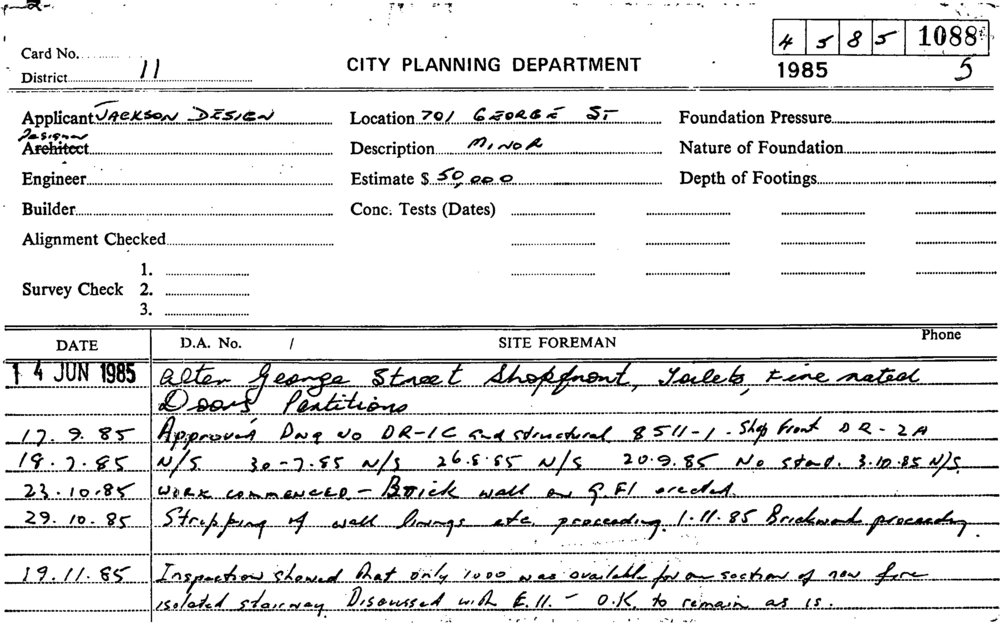 4 5 8 5 1088
Card No.
CITY PLANNING DEPARTMENT
1985 5
District 11
Applicant JACKSON DESIGN Location 701 GEORGE ST Foundation Pressure
Designer
Architect Description MINOR Nature of Foundation
Engineer Estimate $ 50,000 Depth of Footings
Builder Conc. Tests (Dates)
Alignment Checked
1.
Survey Check 2.
3.
DATE D.A. No. / SITE FOREMAN Phone
14 JUN 1985 alter George Street Shopfront, Toilets, Fire rated
Doors Partitions
17. 9. 85 Approved Dwg No DR-1C and structural 8511-1. Shop front DR-2A
19.7.85 N/S 30-7.85 N/S 26.8.85 N/S 20.9.85 No start. 3.10.85 N/S
23.10.85 WORK COMMENCED - Brick wall on G.Fl erected.
29.10.85 Strapping of wall linings etc. proceeding. 1.11.85 Brickwork proceeding
19.11.85 Inspection showed that only 1000 was available for one section of new fire
isolated stairway. Discussed with E.H. - O.K. to remain as is.